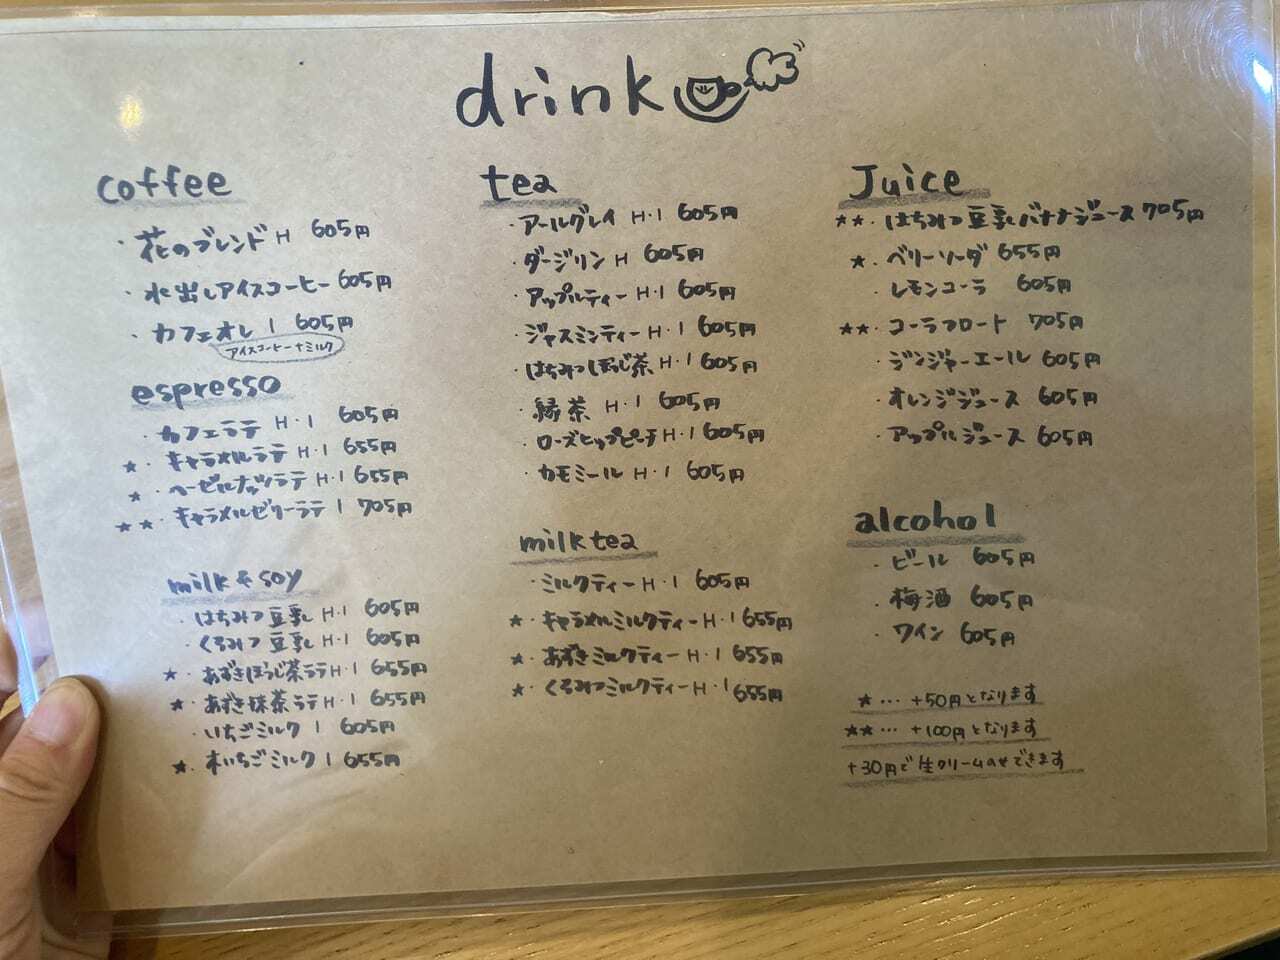 drink
coffee
・花のブレンド H 605円
・水出しアイスコーヒー 605円
・カフェオレ I 605円
アイスコーヒー+ミルク
espresso
・カフェラテ H・I 605円
★・キャラメルラテ H・I 655円
★・ヘーゼルナッツラテ H・I 655円
★★・キャラメルゼリーラテ I 705円
milk & soy
・はちみつ豆乳 H・I 605円
・くろみつ豆乳 H・I 605円
★・あずきほうじ茶ラテ H・I 655円
★・あずき抹茶ラテ H・I 655円
・いちごミルク I 605円
★・木いちごミルク I 655円
tea
・アールグレイ H・I 605円
・ダージリン H 605円
・アップルティー H・I 605円
・ジャスミンティー H・I 605円
・はちみつほうじ茶 H・I 605円
・緑茶 H・I 605円
・ローズヒップピーチ H・I 605円
・カモミール H・I 605円
milk tea
・ミルクティー H・I 605円
★・キャラメルミルクティー H・I 655円
★・あずきミルクティー H・I 655円
★・くろみつミルクティー H・I 655円
Juice
★★・はちみつ豆乳バナナジュース 705円
★・ベリーソーダ 655円
・レモンコーラ 605円
★★・コーラフロート 705円
・ジンジャーエール 605円
・オレンジジュース 605円
・アップルジュース 605円
alcohol
・ビール 605円
・梅酒 605円
・ワイン 605円
★… +50円となります
★★… +100円となります
+30円で生クリームのせできます